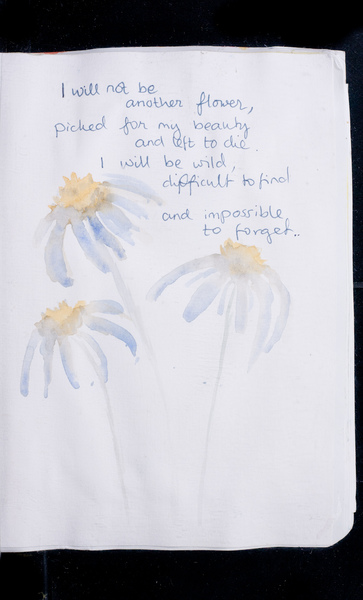 I will not be
another flower,
picked for my beauty
and left to die.
I will be wild,
difficult to find
and impossible
to forget..